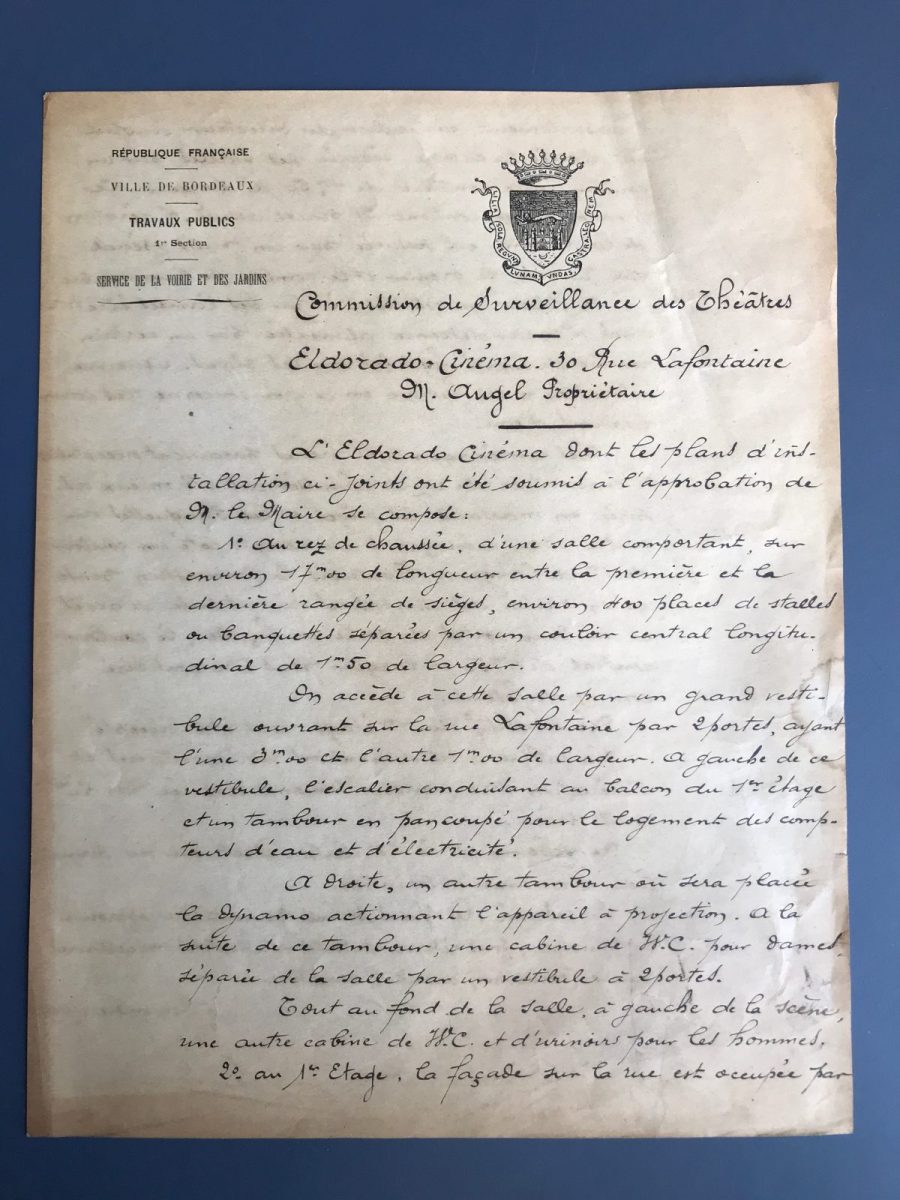 RÉPUBLIQUE FRANÇAISE
VILLE DE BORDEAUX
TRAVAUX PUBLICS
1re Section
SERVICE DE LA VOIRIE ET DES JARDINS
LILIA SOLA REGUNT LUNAM UNDAS CASTRA LEONEM
Commission de Surveillance des Théâtres
Eldorado-Cinéma. 30 Rue Lafontaine
M. Augel Propriétaire
L'Eldorado Cinéma dont les plans d'ins-
tallation ci-joints ont été soumis à l'approbation de
M. le Maire se compose:
1º Au rez de chaussée, d'une salle comportant, sur
environ 17m00 de longueur entre la première et la
dernière rangée de sièges, environ 400 places de stalles
ou banquettes séparées par un couloir central longitu-
dinal de 1m50 de largeur.
On accède à cette salle par un grand vesti-
bule ouvrant sur la rue Lafontaine par 2 portes, ayant
l'une 3m00 et l'autre 1m00 de largeur. A gauche de ce
vestibule, l'escalier conduisant au balcon du 1er étage
et un tambour en pan coupé pour le logement des comp-
teurs d'eau et d'électricité.
A droite, un autre tambour où sera placée
la dynamo actionnant l'appareil à projection. A la
suite de ce tambour, une cabine de W.C. pour dames,
séparée de la salle par un vestibule à 2 portes.
Tout au fond de la salle, à gauche de la scène,
une autre cabine de W.C. et d'urinoirs pour les hommes.
2º au 1er Etage, la façade sur la rue est occupée par